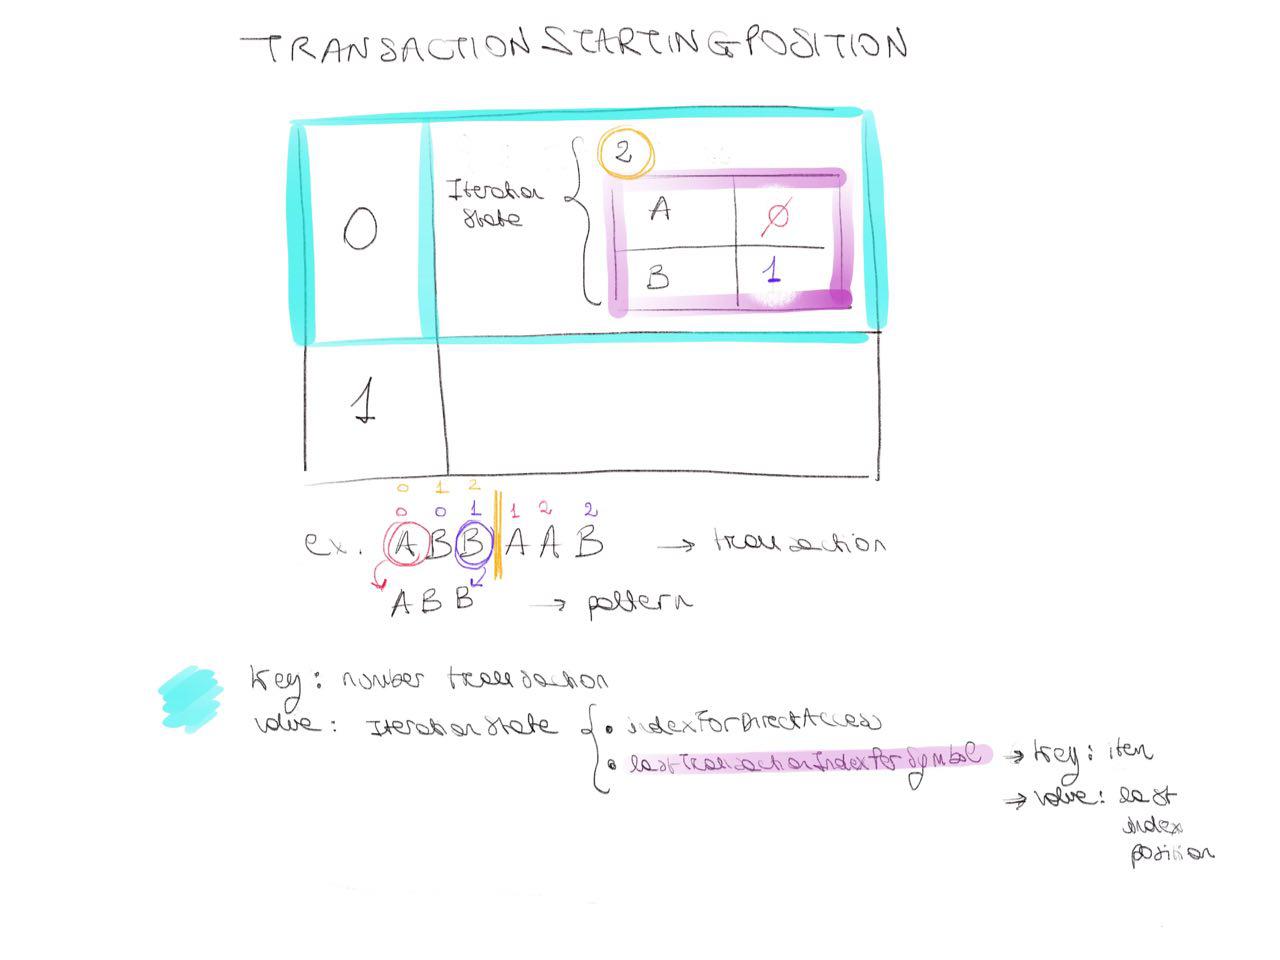 TRANSACTIONSTARTINGPOSITION
2
0
Iteration
State
A 0
B 1
1
0 1 2
0 0 1 1 2 2
ex. A B B A A B → transaction
A B B → pattern
Key: number transaction
value: IterationState { • indexForDirectAccess
• lastTransactionIndexPerSymbol → Key: item
→ value: last
index
position